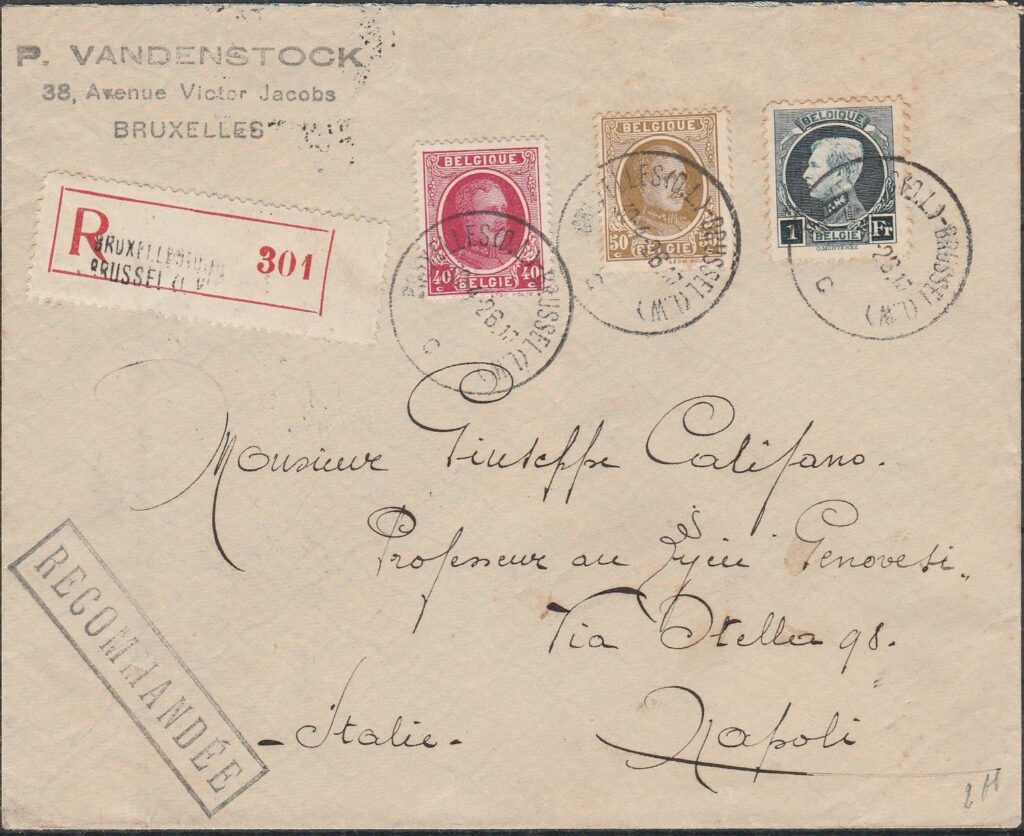 P. VANDENSTOCK
38, Avenue Victor Jacobs
BRUXELLES
R
BRUXELLES
BRUSSEL
301
BELGIQUE
40 c BELGIE 40 c
BELGIQUE
50 c BELGIE
BELGIQUE
1 BELGIE Fr
MONTENEZ
BRUSSEL (L.W)
C
LES (Q.L)-BRUSSEL (L.W)
C
(Q.L)-BRUSSEL (L.W)
C
Monsieur Giuseppe Califano.
Professeur au Lycée Genovesi,
Via Stella 98.
- Italie -
Napoli
RECOMMANDÉE